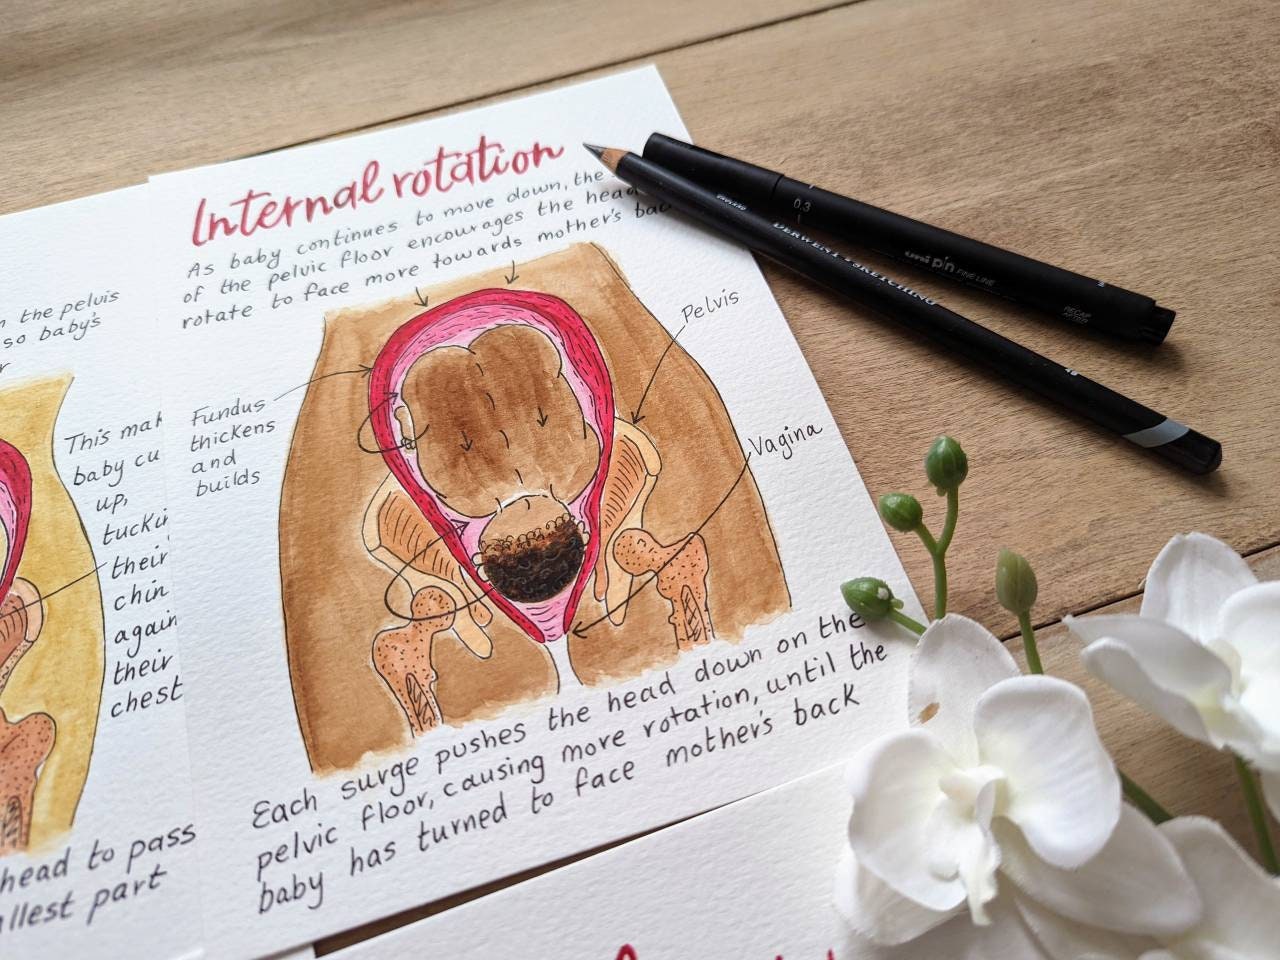 Internal rotation
As baby continues to move down, the
of the pelvic floor encourages the head
rotate to face more towards mother's back
Pelvis
Fundus
thickens
and
builds
Vagina
Each surge pushes the head down on the
pelvic floor, causing more rotation, until the
baby has turned to face mother's back
the pelvis
so baby's
This
baby
up,
their
chin
their
chest
head to pass
part
0.3
uni pin FINE LINE
RECAP
AFTER
DERWENT SKETCHING